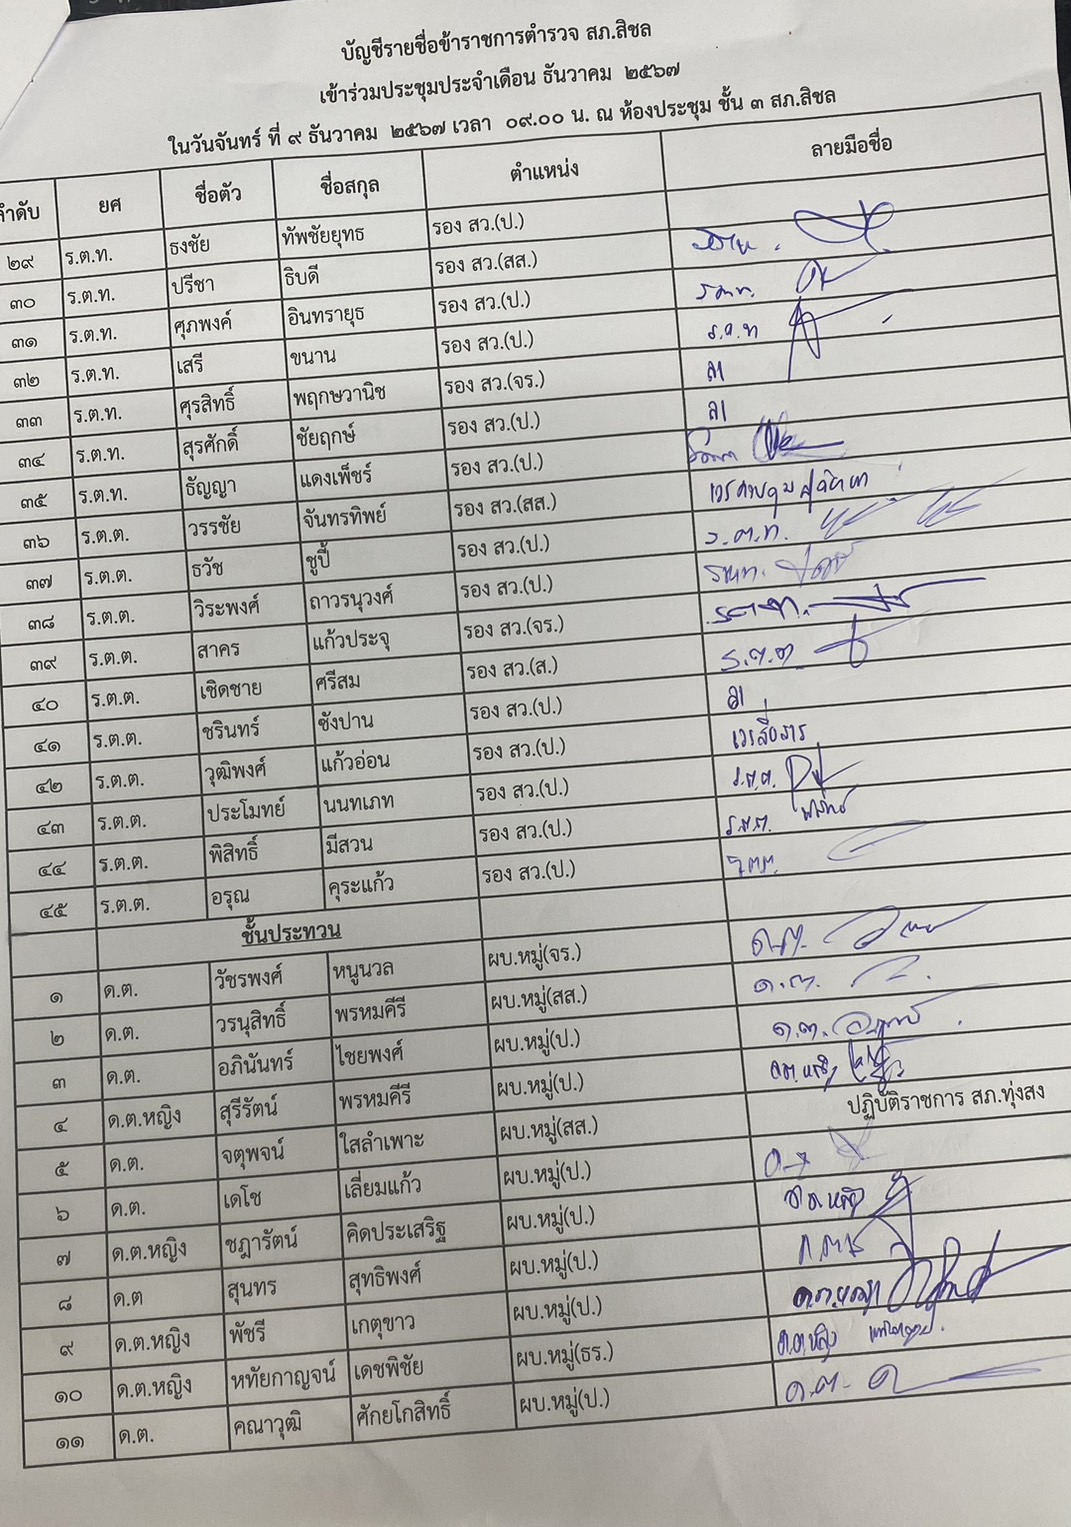 บัญชีรายชื่อข้าราชการตำรวจ สภ.สิชล
เข้าร่วมประชุมประจำเดือน ธันวาคม ๒๕๖๗
ในวันจันทร์ ที่ ๙ ธันวาคม ๒๕๖๗ เวลา ๐๙.๐๐ น. ณ ห้องประชุม ชั้น ๓ สภ.สิชล
ลำดับ ยศ ชื่อตัว ชื่อสกุล ตำแหน่ง ลายมือชื่อ
๒๙ ร.ต.ท. ธงชัย ทัพชัยยุทธ รอง สว.(ป.)
๓๐ ร.ต.ท. ปรีชา ธิบดี รอง สว.(สส.)
๓๑ ร.ต.ท. ศุภพงค์ อินทรายุธ รอง สว.(ป.) ร.ต.ท
๓๒ ร.ต.ท. เสรี ขนาน รอง สว.(ป.) ลา
๓๓ ร.ต.ท. ศุรสิทธิ์ พฤกษวานิช รอง สว.(จร.) ลา
๓๔ ร.ต.ท. สุรศักดิ์ ชัยฤกษ์ รอง สว.(ป.)
๓๕ ร.ต.ท. ธัญญา แดงเพ็ชร์ รอง สว.(ป.)
๓๖ ร.ต.ต. วรรชัย จันทรทิพย์ รอง สว.(สส.) ร.ต.ท.
๓๗ ร.ต.ต. ธวัช ชูปี้ รอง สว.(ป.)
๓๘ ร.ต.ต. วิระพงศ์ ถาวรนุวงศ์ รอง สว.(ป.)
๓๙ ร.ต.ต. สาคร แก้วประจุ รอง สว.(จร.) ร.ต.ต
๔๐ ร.ต.ต. เชิดชาย ศรีสม รอง สว.(ส.) ลา
๔๑ ร.ต.ต. ชรินทร์ ซังปาน รอง สว.(ป.) เวรสื่อสาร
๔๒ ร.ต.ต. วุฒิพงศ์ แก้วอ่อน รอง สว.(ป.) ร.ต.ต.
๔๓ ร.ต.ต. ประโมทย์ นนทเภท รอง สว.(ป.) ร.ต.ต.
๔๔ ร.ต.ต. พิสิทธิ์ มีสวน รอง สว.(ป.)
๔๕ ร.ต.ต. อรุณ คุระแก้ว รอง สว.(ป.)
ชั้นประทวน
๑ ด.ต. วัชรพงศ์ หนูนวล ผบ.หมู่(จร.) ด.ต.
๒ ด.ต. วรนุสิทธิ์ พรหมคีรี ผบ.หมู่(สส.) ด.ต.
๓ ด.ต. อภินันทร์ ไชยพงศ์ ผบ.หมู่(ป.) ด.ต.
๔ ด.ต.หญิง สุรีรัตน์ พรหมคีรี ผบ.หมู่(ป.) ด.ต.หญิง
๕ ด.ต. จตุพจน์ ใสลำเพาะ ผบ.หมู่(สส.) ปฏิบัติราชการ สภ.ทุ่งสง
๖ ด.ต. เดโช เลี่ยมแก้ว ผบ.หมู่(ป.)
๗ ด.ต.หญิง ชฎารัตน์ คิดประเสริฐ ผบ.หมู่(ป.) ด.ต.หญิง
๘ ด.ต สุนทร สุทธิพงศ์ ผบ.หมู่(ป.)
๙ ด.ต.หญิง พัชรี เกตุขาว ผบ.หมู่(ป.) ด.ต.หญิง
๑๐ ด.ต.หญิง หทัยกาญจน์ เดชพิชัย ผบ.หมู่(ธร.) ด.ต.หญิง
๑๑ ด.ต. คณาวุฒิ ศักยโกสิทธิ์ ผบ.หมู่(ป.) ด.ต.